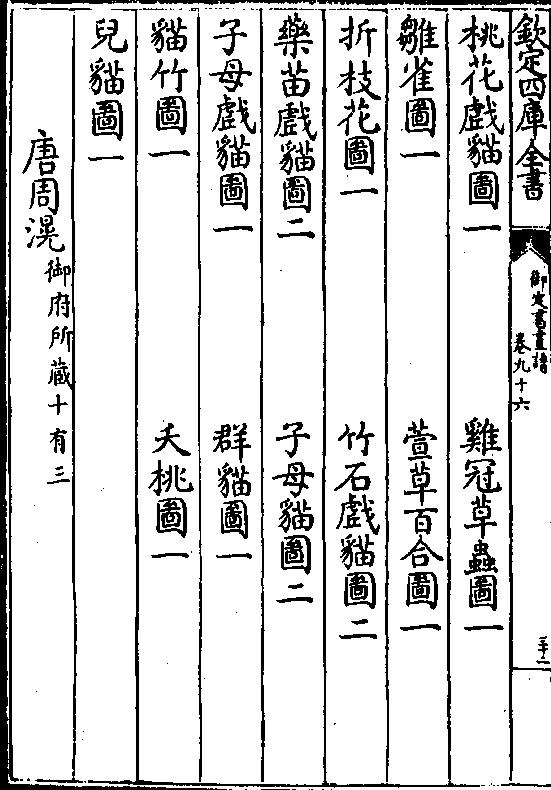 欽定四庫全書
御定書畫譜
卷九十六
三十二
桃花戲貓圖一 雞冠草蟲圖一
雛雀圖一 萱草百合圖一
折枝花圖一 竹石戲貓圖二
藥苗戲貓圖二 子母貓圖二
子母戲貓圖一 群貓圖一
貓竹圖一 夭桃圖一
兒貓圖一
唐周滉御府所藏十有三